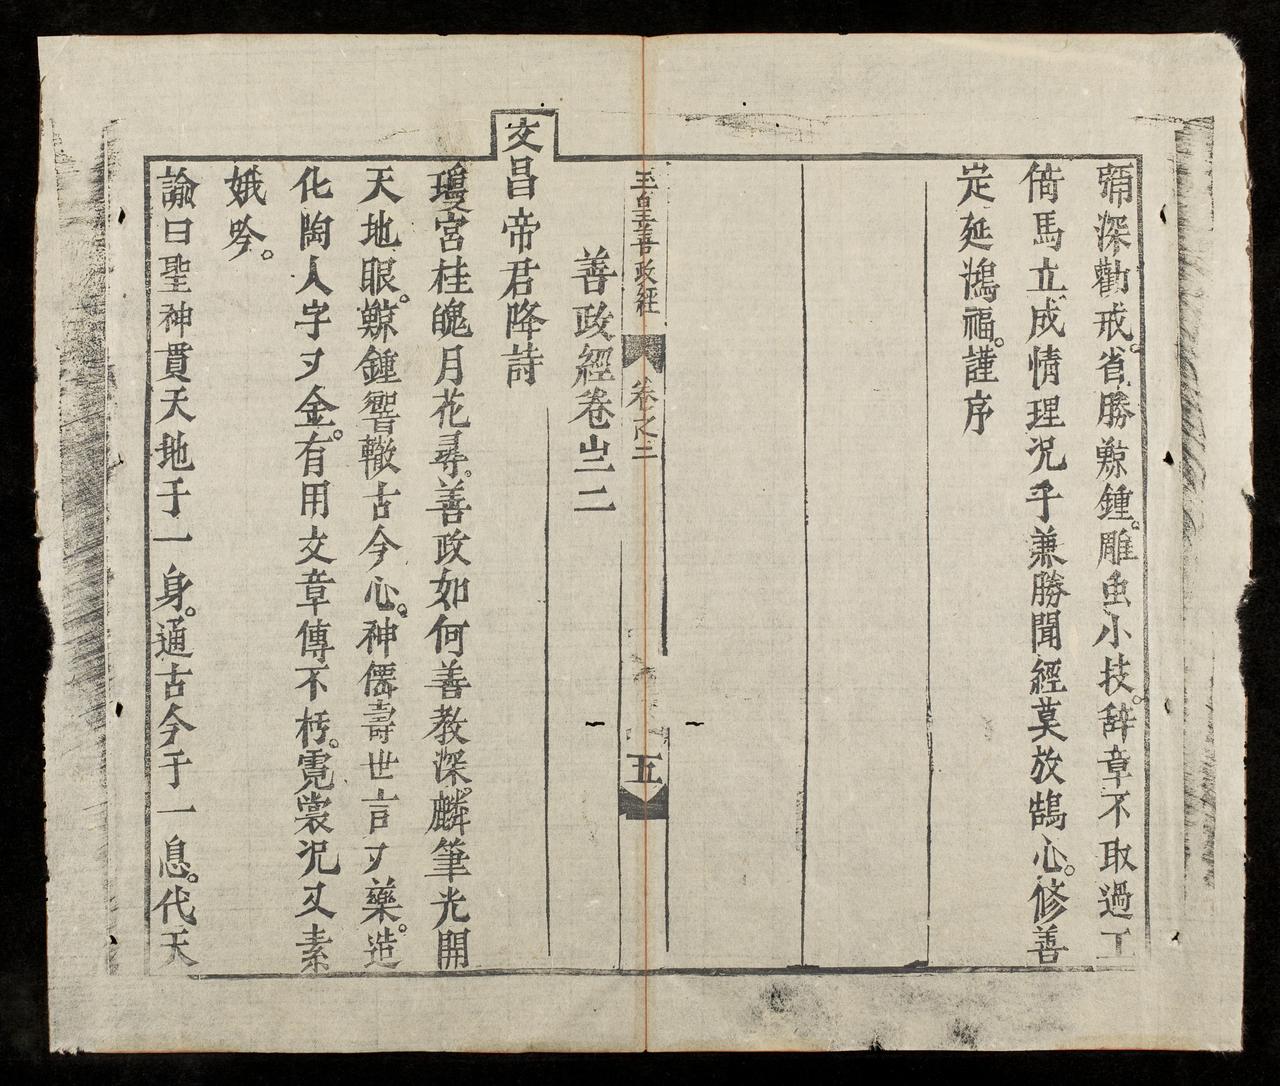 彌深勸戒。省勝鯨鍾。雕虫小技。辞章不取過工
倚馬立成情理況乎兼勝聞經莫放鵠心。修善
定延鴻福。謹序
玉皇善政經 卷之二 五
善政經卷之二
文昌帝君降詩
瓊宮桂魄月花尋。善政如何善教深。麟筆光開
天地眼。鯨鍾響轍古今心。神儒壽世言为藥。造
化陶人字为金。有用文章傳不朽。霓裳況又素
娥吟。
諭曰聖神貫天地于一身。通古今于一息。代天